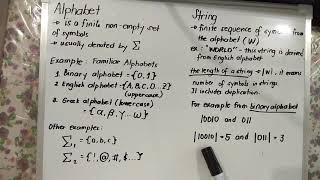 Alphabet
- is a finite non-empty set
of symbols
- usually denoted by Σ
Example: Familiar Alphabets
1. Binary alphabet = {0,1}
2. English alphabet = {A,B,C,D...Z}
(uppercase)
3. Greek alphabet (lowercase)
= {α, β, γ...ω}
Other examples:
Σ₁ = {a,b,c}
Σ₂ = {!,@,#,$...}
String
- finite sequence of symbols from
the alphabet (W)
ex: "WORLD" - this string is derived
from English alphabet
the length of a string → |w|, it means
number of symbols in strings
It includes duplication.
For example from binary alphabet
10010 and 011
|10010| = 5 and |011| = 3